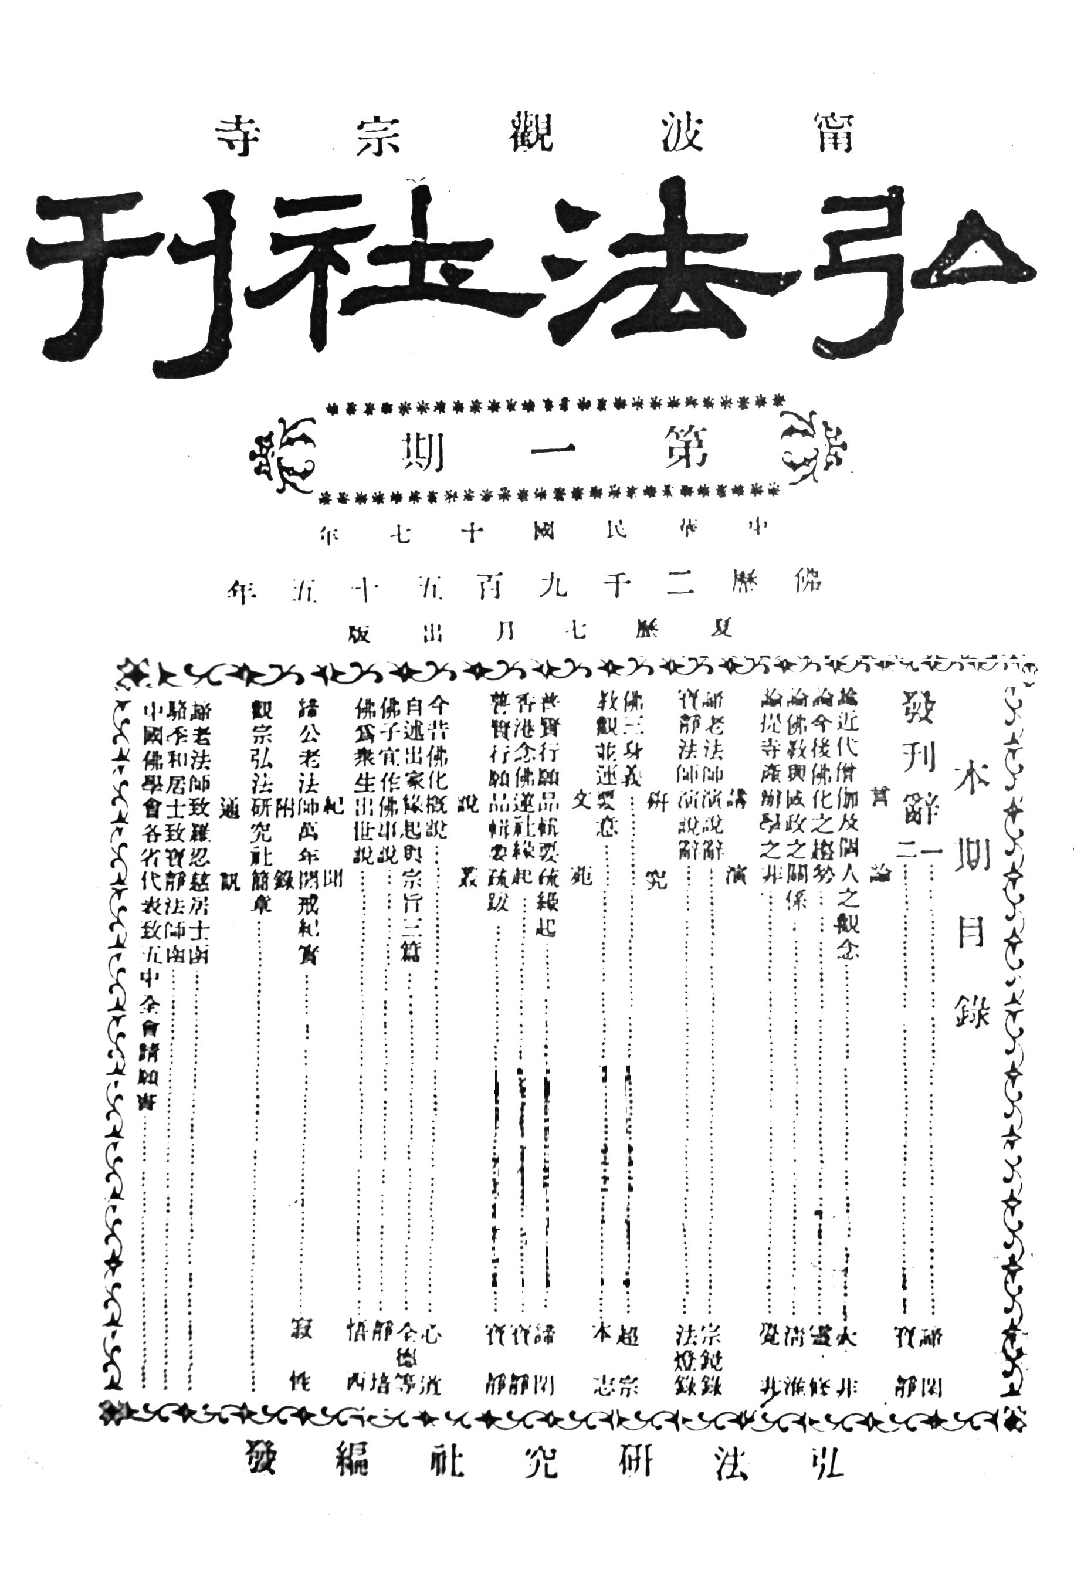 甯波觀宗寺
弘法社刊
第一期
中華民國十七年
佛歷二千九百五十五年
夏歷七月出版
本期目錄
發刊辭 一 諦閑
二 寶靜
言論
論近代僧伽及個人之觀念 大非
論今後佛化之趨勢 靈修
論佛教與國政之關係 清淮
論提寺產辦學之非 覺非
講演
諦老法師演說辭 宗鏡錄
寶靜法師演說辭 法燈錄
研究
佛三身義 超宗
教觀並運要意 本志
文苑
普賢行願品輯要疏緣起 諦閑
香港念佛蓮社緣起 寶靜
普賢行願品輯要疏跋 寶靜
說叢
今昔佛化概說 心道
自述出家緣起與宗旨三篇 全德等
佛子宜作佛事說 靜培
佛爲衆生出世說 悟西
紀聞
諦公老法師萬年開戒紀實 寂性
附錄
觀宗弘法研究社簡章
通訊
諦老法師致羅忍慈居士函
駱季和居士致寶靜法師函
中國佛學會各省代表致五中全會請願書
弘法研究社編發